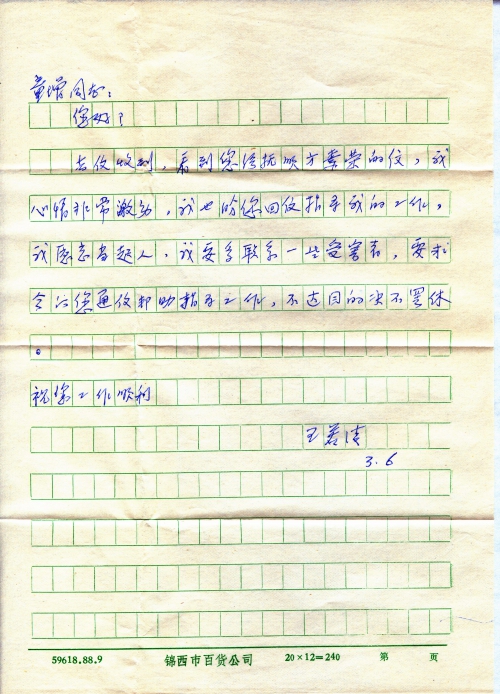 童增同志:
您好!
去信收到,看到您给抚顺方素荣的信,我
心情非常激动,我也盼您回信指导我的工作,
我愿意者起人,我要多联系一些受害者,要求
今后您通信帮助指导工作,不达目的决不罢休
。
祝您工作顺利
王若清
3.6
59618.88.9 锦西市百货公司 20×12=240 第 页